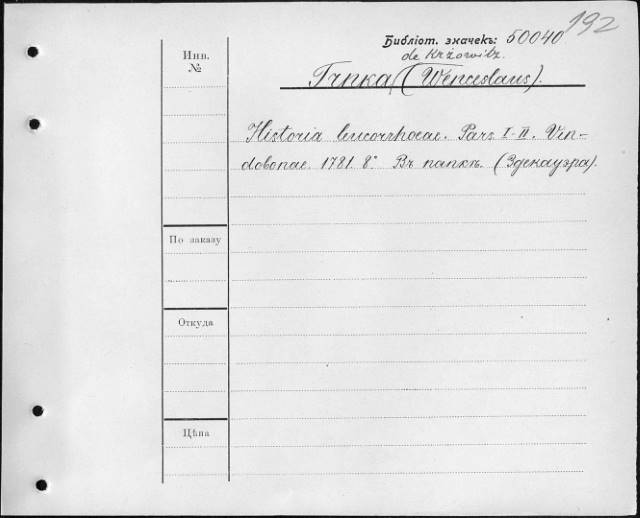 192
Библіот. значекъ: 50040
de Kržowitz.
Trnka (Wenceslaus).
Инв.
№
Historia leucorrhoeae. Pars I-II. Vin-
dobonae. 1781. 8°. Въ папкѣ. (Здекауэра).
По заказу
Откуда
Цѣна